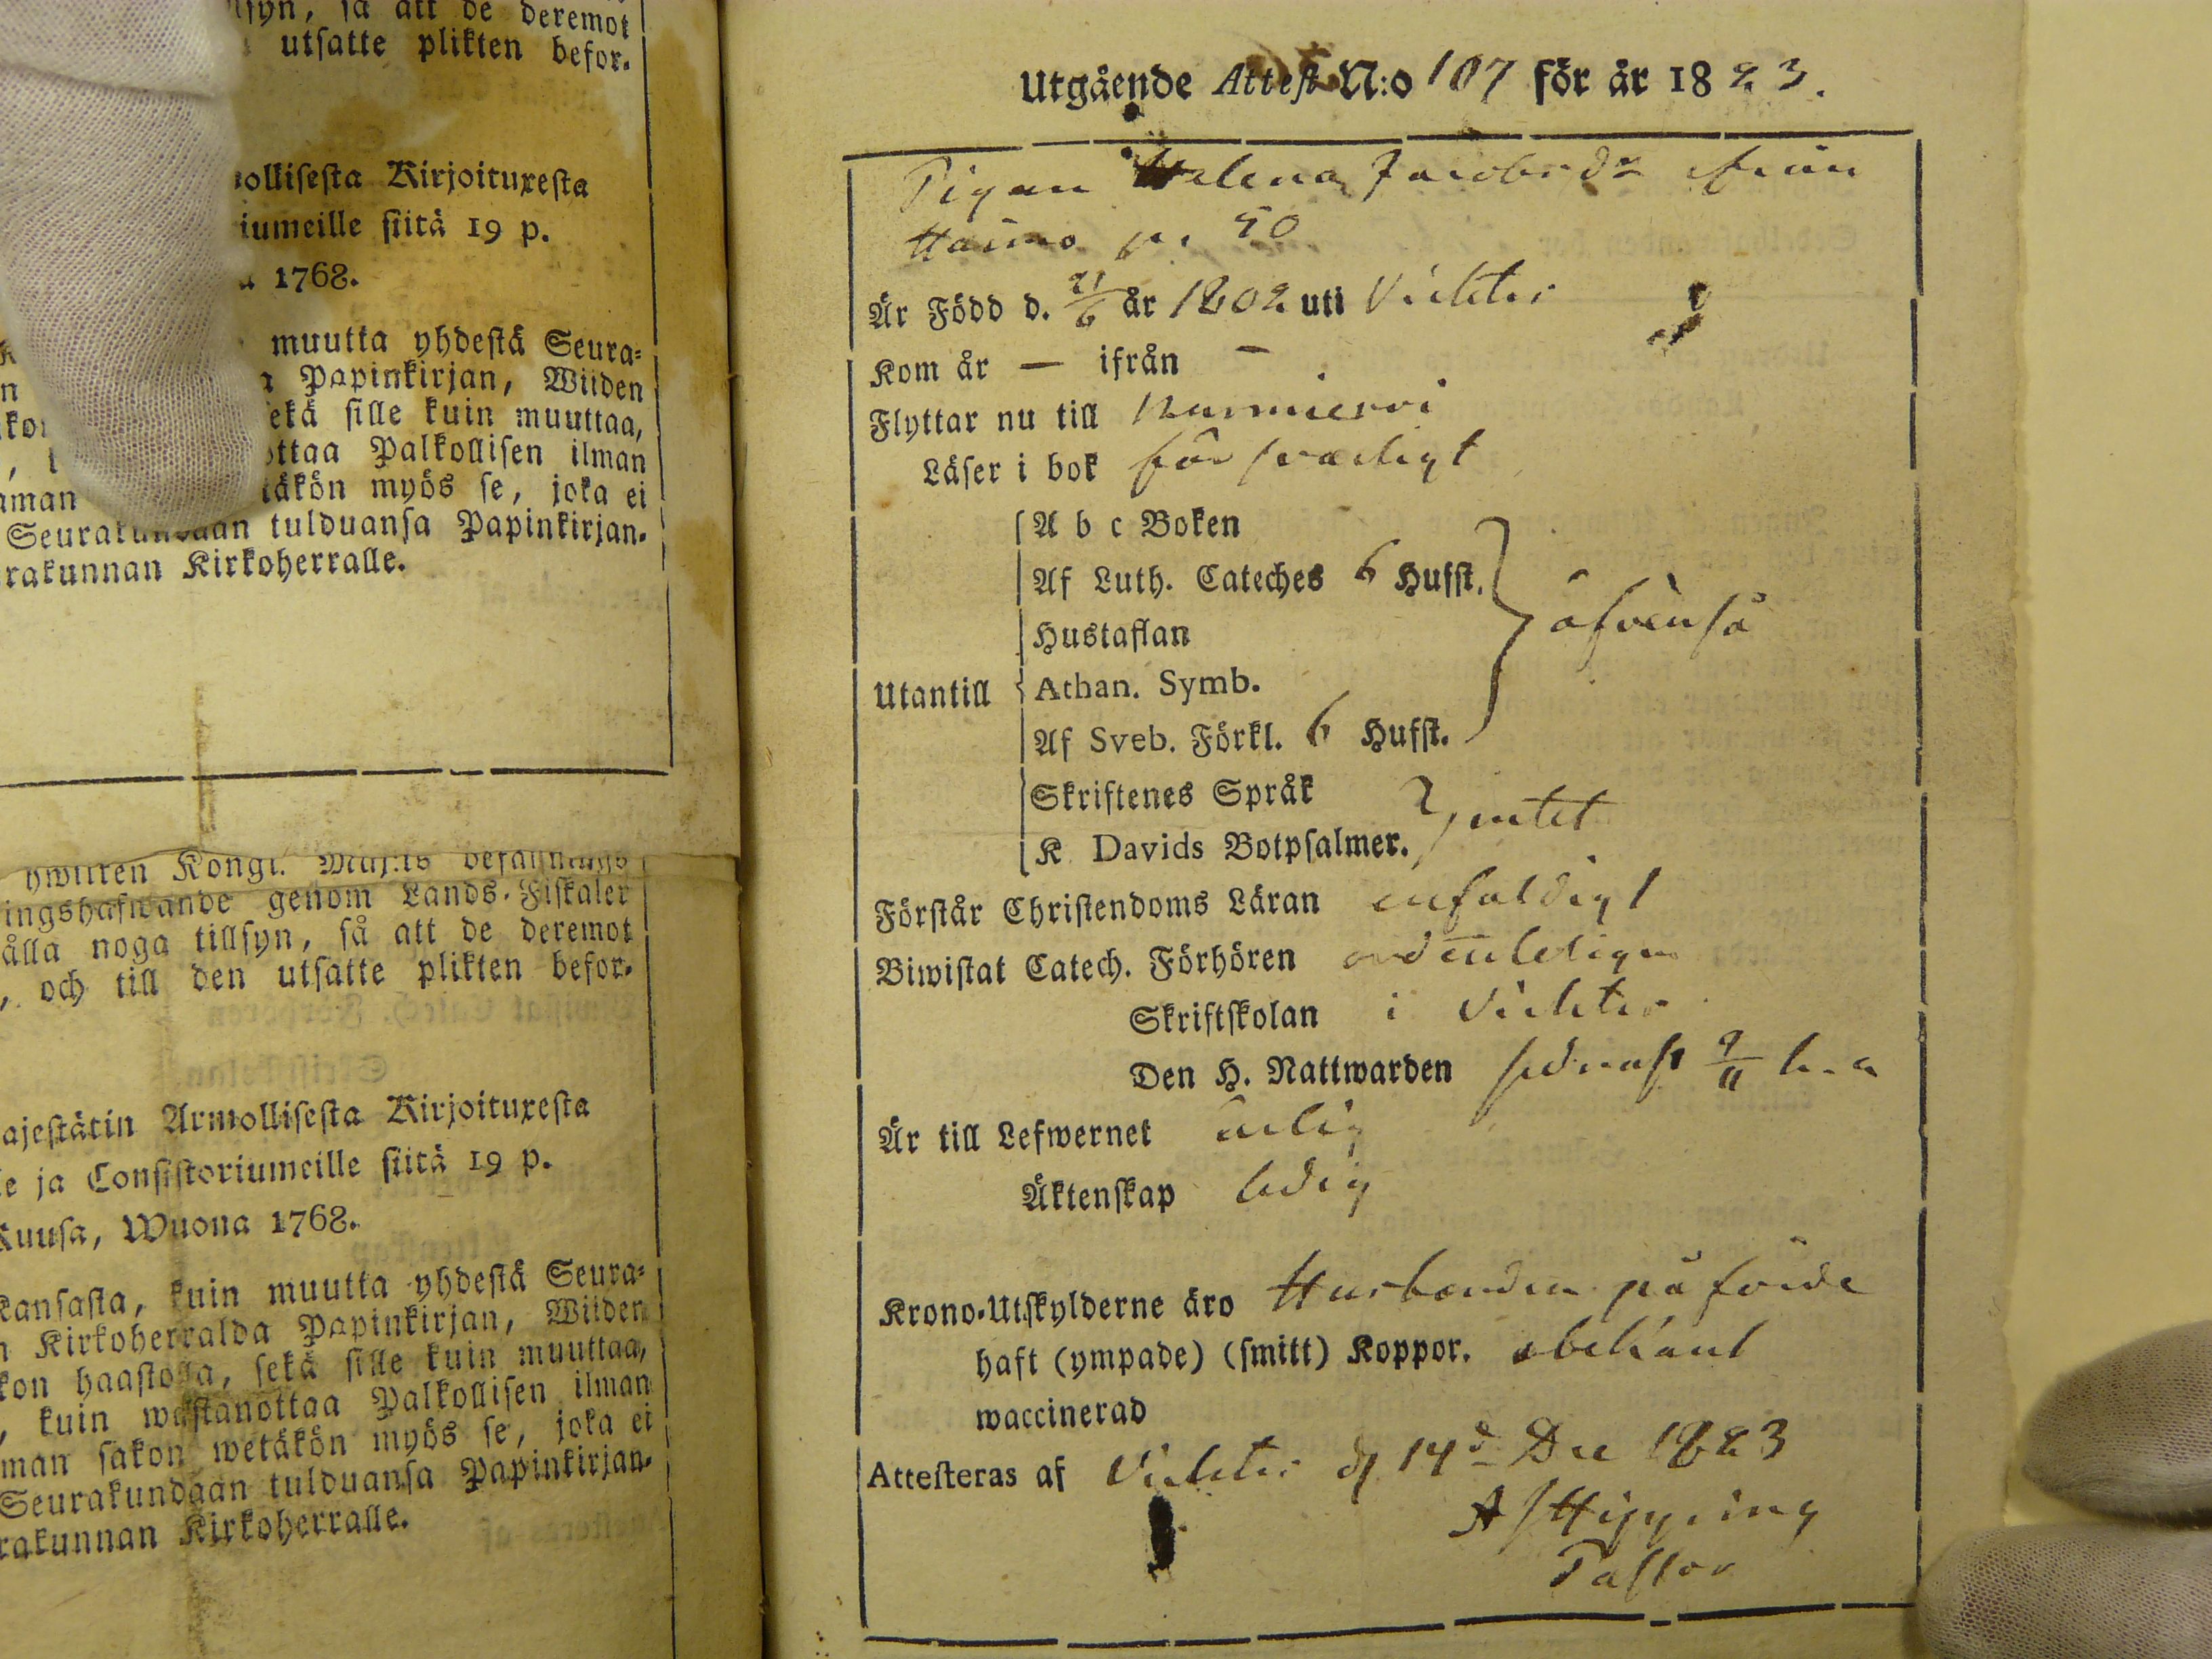 lsyn, så att de deremot
utsatte plikten befor.
ollisesta Kirjoituxesta
iumeille siitä 19 p.
1768.
muutta yhdestä Seura-
Papinkirjan, Wiiden
ekä sille kuin muuttaa,
ottaa Palkollisen ilman
äkön myös se, joka ei
Seurakundaan tulduansa Papinkirjan.
rakunnan Kirkoherralle.
Kongl. Maj:ts befallnings
ingshafwande genom Lands-Fiskaler
ålla noga tillsyn, så att de deremot
, och till den utsatte plikten befor.
ajestätin Armollisesta Kirjoituxesta
e ja Consistoriumeille siitä 19 p.
Kuusa, Wuona 1768.
Kansasta, kuin muutta yhdestä Seura-
n Kirkoherralda Papinkirjan, Wiiden
kon haastolla, sekä sille kuin muuttaa,
, kuin wastanottaa Palkollisen ilman
man sakon wetäkön myös se, joka ei
Seurakundaan tulduansa Papinkirjan.
rakunnan Kirkoherralle.
Utgående Attest N:o 107 för år 1823.
Pigan Helena Jacobsdr ifrån
Haimo
Är Född d. 21/6 år 1802 uti Vichtis
Kom år — ifrån —
Flyttar nu till Nurmijervi
Läser i bok försvarligt
A b c Boken
Af Luth. Cateches 6 Hufst.
Hustaflan
äfvenså
Utantill Athan. Symb.
Af Sveb. Förkl. 6 Hufst.
Skriftenes Språk
intet
K Davids Botpsalmer.
Förstår Christendoms Läran enfaldigt
Biwistat Catech. Förhören ordenteligen
Skriftskolan i Vichtis
Den H. Nattwarden sednast 9/11 h. a
Är till Lefwernet ärlig
Äktenskap ledig
Krono-Utskylderne äro Husbonden påförde
haft (ympade) (smitt) Koppor. obekant
waccinerad
Attesteras af Vichtis d 14d Dec 1823
A J Hipping
Pastor